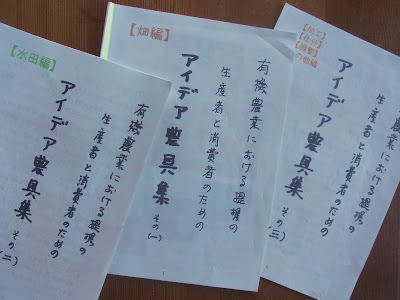 【水田編】
有機農業における提携の
生産者と消費者のための
アイデア農具集
その(二)
【畑編】
有機農業における提携の
生産者と消費者のための
アイデア農具集
その(一)
1
【加工】
【仕分】
【調整】
の他編
における提携の
生産者と消費者のための
アイデア農具集
その(三)